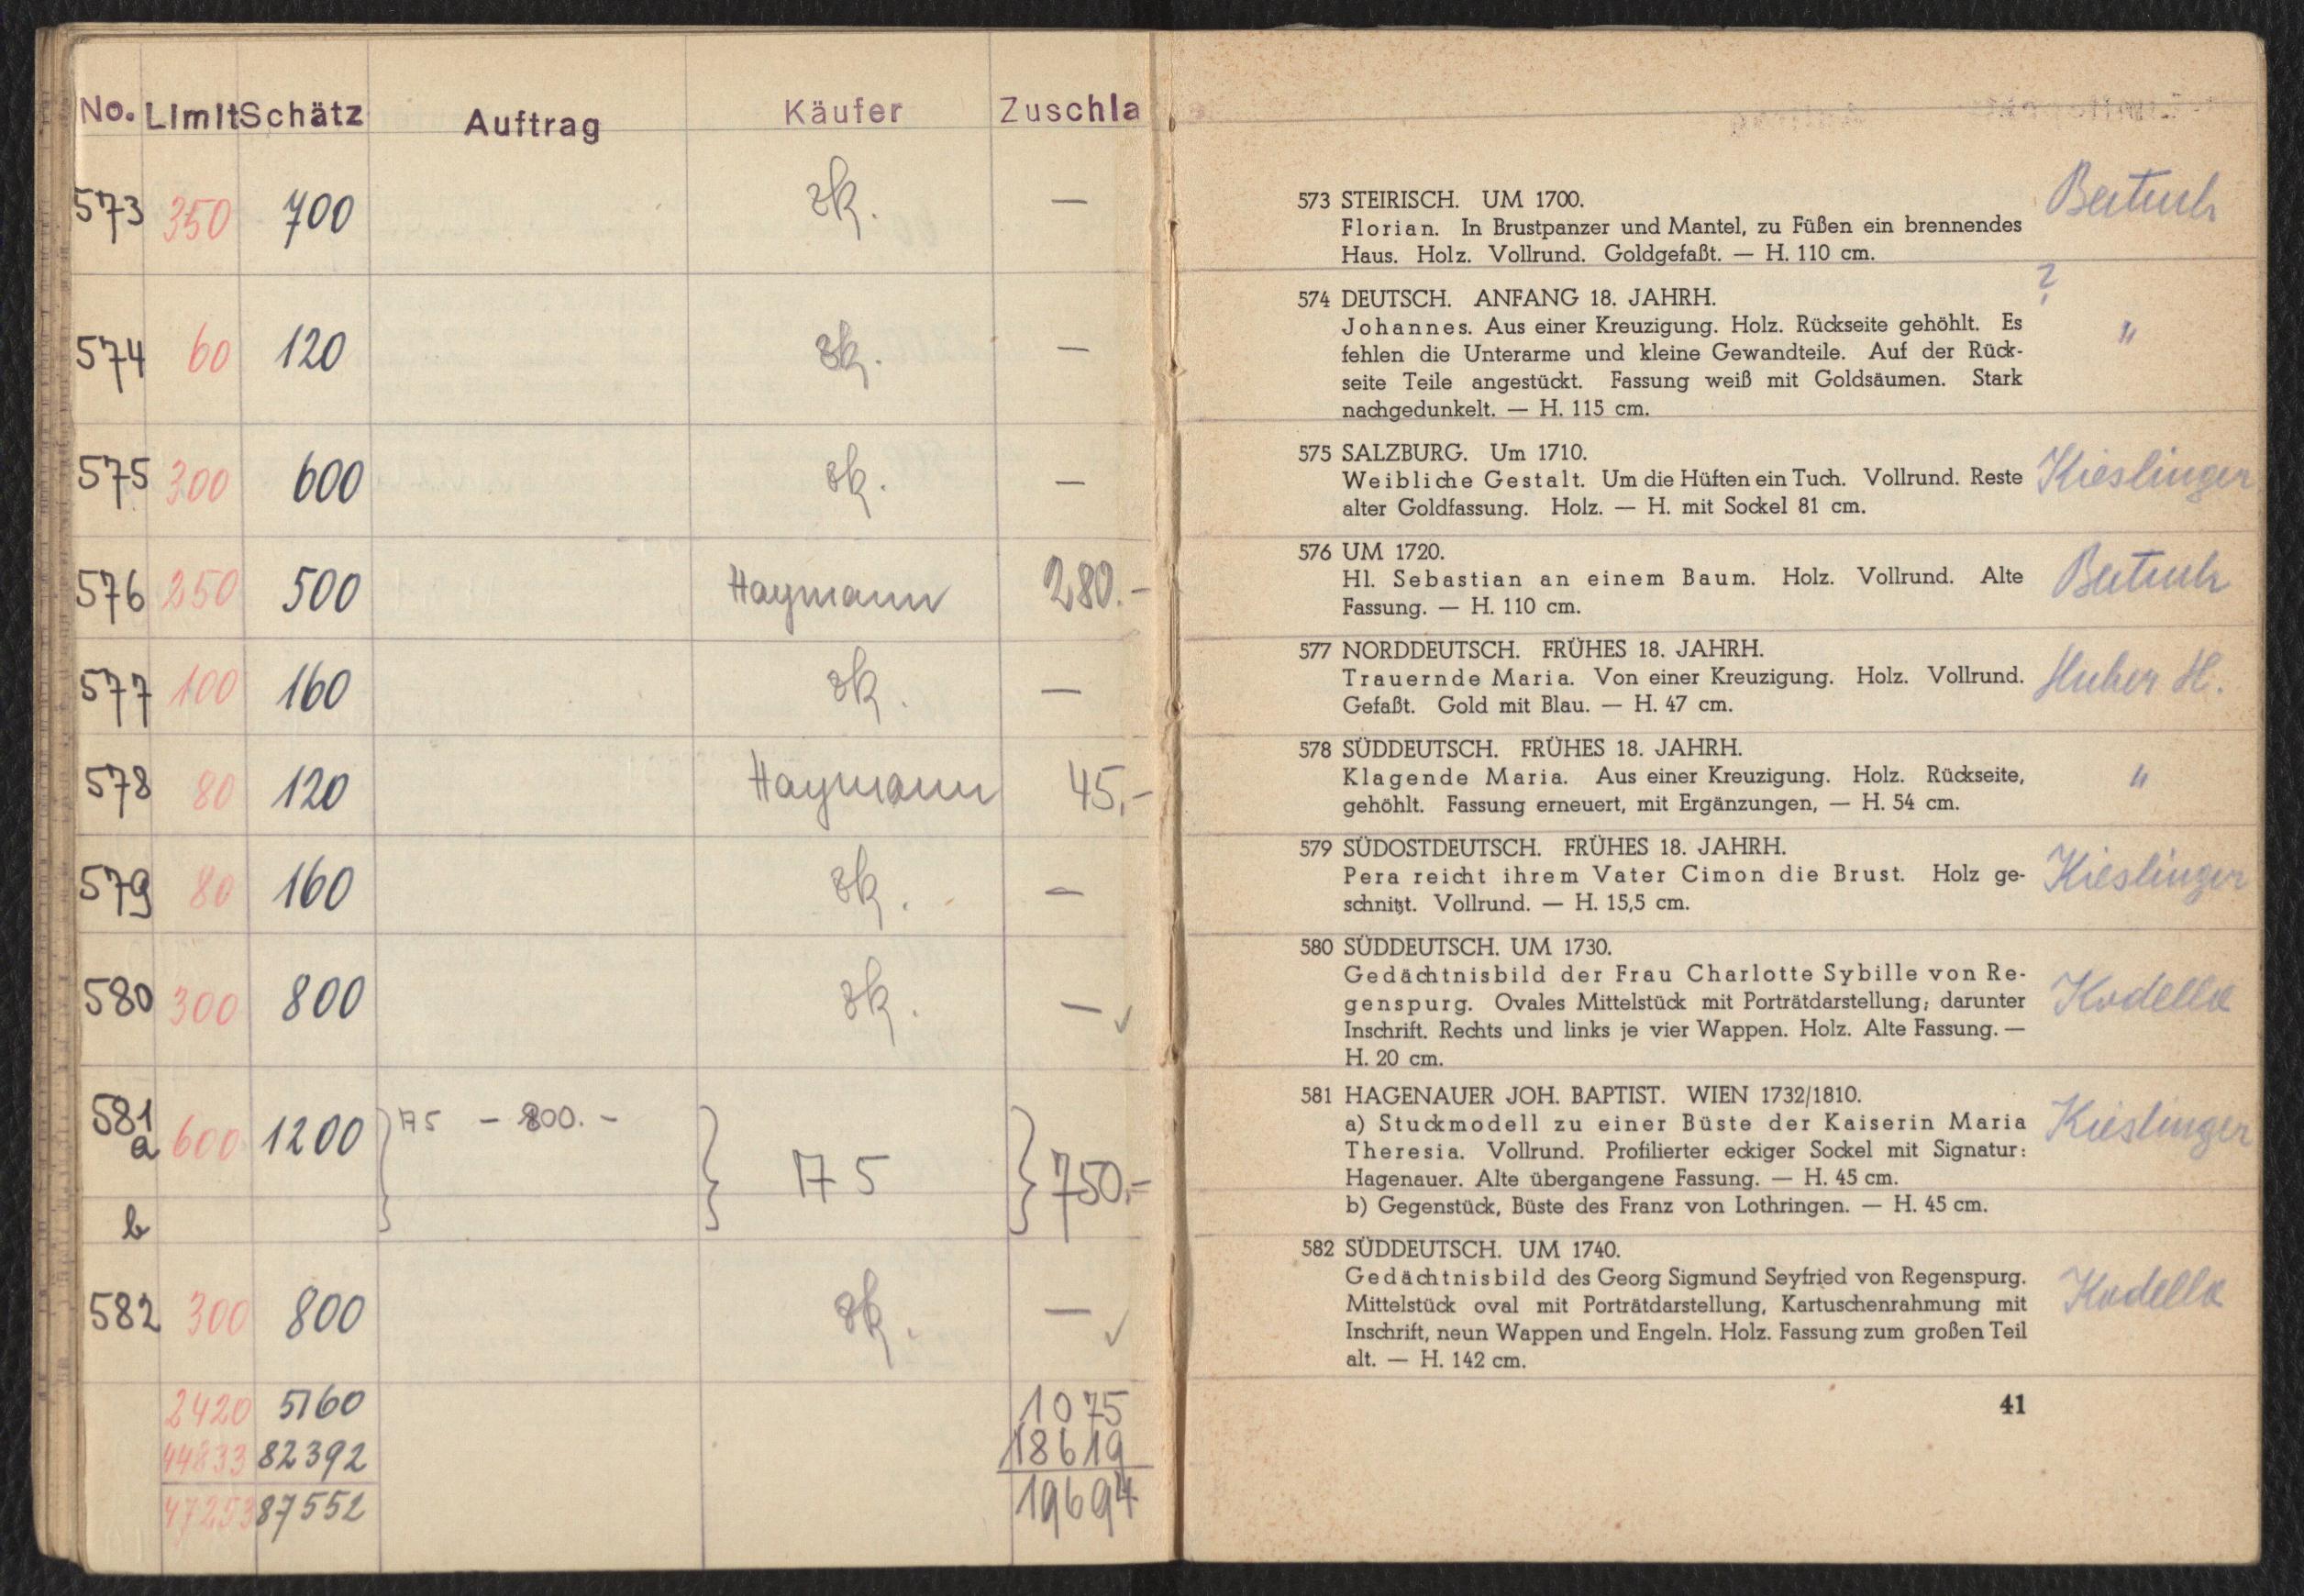 No. Limit Schätz Auftrag Käufer Zuschla
573 350 700 zk. —
574 60 120 zk. —
575 300 600 zk. —
576 250 500 Haymann 280.-
577 100 160 zk. —
578 80 120 Haymann 45,-
579 80 160 zk. —
580 300 800 zk. — ✓
581 a 600 1200 175 — 800.- 175 750.-
b
582 300 800 zk. — ✓
2420 5160 1075
44833 82392 18619
47253 87552 19694
573 STEIRISCH. UM 1700. Bertuch
Florian. In Brustpanzer und Mantel, zu Füßen ein brennendes
Haus. Holz. Vollrund. Goldgefaßt. — H. 110 cm.
574 DEUTSCH. ANFANG 18. JAHRH. ?
Johannes. Aus einer Kreuzigung. Holz. Rückseite gehöhlt. Es "
fehlen die Unterarme und kleine Gewandteile. Auf der Rück-
seite Teile angestückt. Fassung weiß mit Goldsäumen. Stark
nachgedunkelt. — H. 115 cm.
575 SALZBURG. Um 1710.
Weibliche Gestalt. Um die Hüften ein Tuch. Vollrund. Reste Kieslinger
alter Goldfassung. Holz. — H. mit Sockel 81 cm.
576 UM 1720.
Hl. Sebastian an einem Baum. Holz. Vollrund. Alte Bertuch
Fassung. — H. 110 cm.
577 NORDDEUTSCH. FRÜHES 18. JAHRH.
Trauernde Maria. Von einer Kreuzigung. Holz. Vollrund. Huber H.
Gefaßt. Gold mit Blau. — H. 47 cm.
578 SÜDDEUTSCH. FRÜHES 18. JAHRH.
Klagende Maria. Aus einer Kreuzigung. Holz. Rückseite, "
gehöhlt. Fassung erneuert, mit Ergänzungen, — H. 54 cm.
579 SÜDOSTDEUTSCH. FRÜHES 18. JAHRH.
Pera reicht ihrem Vater Cimon die Brust. Holz ge- Kieslinger
schnitzt. Vollrund. — H. 15,5 cm.
580 SÜDDEUTSCH. UM 1730.
Gedächtnisbild der Frau Charlotte Sybille von Re-
genspurg. Ovales Mittelstück mit Porträtdarstellung; darunter Kodella
Inschrift. Rechts und links je vier Wappen. Holz. Alte Fassung. —
H. 20 cm.
581 HAGENAUER JOH. BAPTIST. WIEN 1732/1810.
a) Stuckmodell zu einer Büste der Kaiserin Maria Kieslinger
Theresia. Vollrund. Profilierter eckiger Sockel mit Signatur:
Hagenauer. Alte übergangene Fassung. — H. 45 cm.
b) Gegenstück, Büste des Franz von Lothringen. — H. 45 cm.
582 SÜDDEUTSCH. UM 1740.
Gedächtnisbild des Georg Sigmund Seyfried von Regenspurg. Kodella
Mittelstück oval mit Porträtdarstellung, Kartuschenrahmung mit
Inschrift, neun Wappen und Engeln. Holz. Fassung zum großen Teil
alt. — H. 142 cm.
41